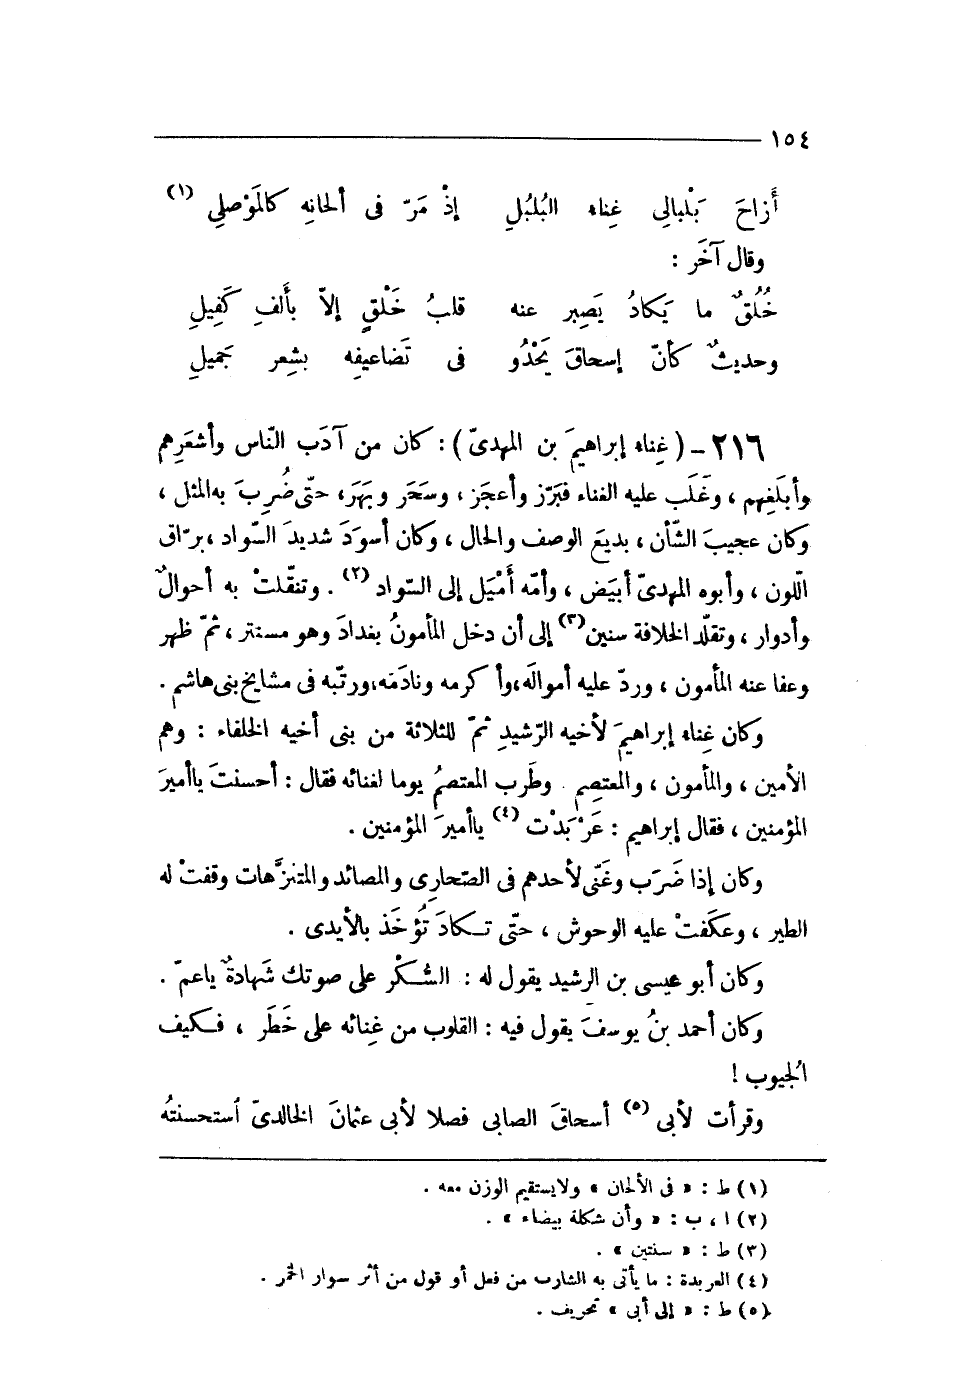 ١٥٤
أَزاحَ بَلْبالِى غِناء البُلبُلِ إذْ مَرّ فى ألحانِه كالمَوْصلِي (١)
وقال آخَر :
خُلُقٌ ما يَكادُ يَصبِر عنه قلبُ خَلْقٍ إلاّ بأَلفِ كَفِيلِ
وحديثٌ كأنّ إسحاقَ يَحْدُو فى تَضاعيفِه بشِعر جَميلِ
٢١٦ – ( غِناء إبراهيمَ بن المهدىّ ) : كان من آدَب النّاس وأشعَرِهم
وأبلَغِهم ، وغَلَب عليه الغناء فبَرّز وأعجَز ، وسَحَر وبَهَر، حتّى ضُرِبَ به المثل ،
وكان عجيبَ الشّأن ، بديعَ الوصف والحال ، وكان أسوَدَ شديدَ السّواد ، برّاق
الّلون ، وأبوه المهدىّ أبيَض ، وأمّه أَمْيَل إلى السّواد (٢) . وتنقّلتْ به أحوالٌ
وأدوار ، وتقلّد الخلافة سنين(٣) إلى أن دخل المأمونُ بغدادَ وهو مستتر ، ثمّ ظهر
وعفا عنه المأمون ، وردّ عليه أموالَه،وأكرمه ونادَمَه،ورتّبه فى مشايخ بنى هاشم .
وكان غِناء إبراهيمَ لأخيه الرّشيدِ ثمّ للثلاثة من بنى أخيه الخلفاء : وهم
الأمين ، والمأمون ، والمعتصِم . وطَرِب المعتصمُ يوما لغنائه فقال : أحسنتَ ياأميرَ
المؤمنين ، فقال إبراهيم : عَرْبَدْت (٤) ياأميرَ المؤمنين .
وكان إذا ضَرَب وغَنّى لأحدهم فى الصّحارِى والمصائد والمتنزَّهات وقفتْ له
الطير ، وعكَفتْ عليه الوحوش ، حتّى تكادَ تُؤخَذ بالأيدى .
وكان أبو عيسى بن الرشيد يقول له : السُّكْر على صوتك شَهادةٌ ياعمّ .
وكان أحمد بنُ يوسفَ يقول فيه : القلوب من غِنائه على خَطَر ، فكيف
الجيوب !
وقرأت لأبى (٥) أسحاقَ الصابى فصلا لأبى عثمانَ الخالدىّ استحسنتُه
(١) ط : « فى الألحان » ولايستقيم الوزن معه .
(٢) ا ، ب : « وأن شكلة بيضاء » .
(٣) ط : « سنتين » .
(٤) العربدة : ما يأتى به الشارب من فعل أو قول من أثر سوار الخمر .
(٥) ط : « إلى أبى » تحريف .